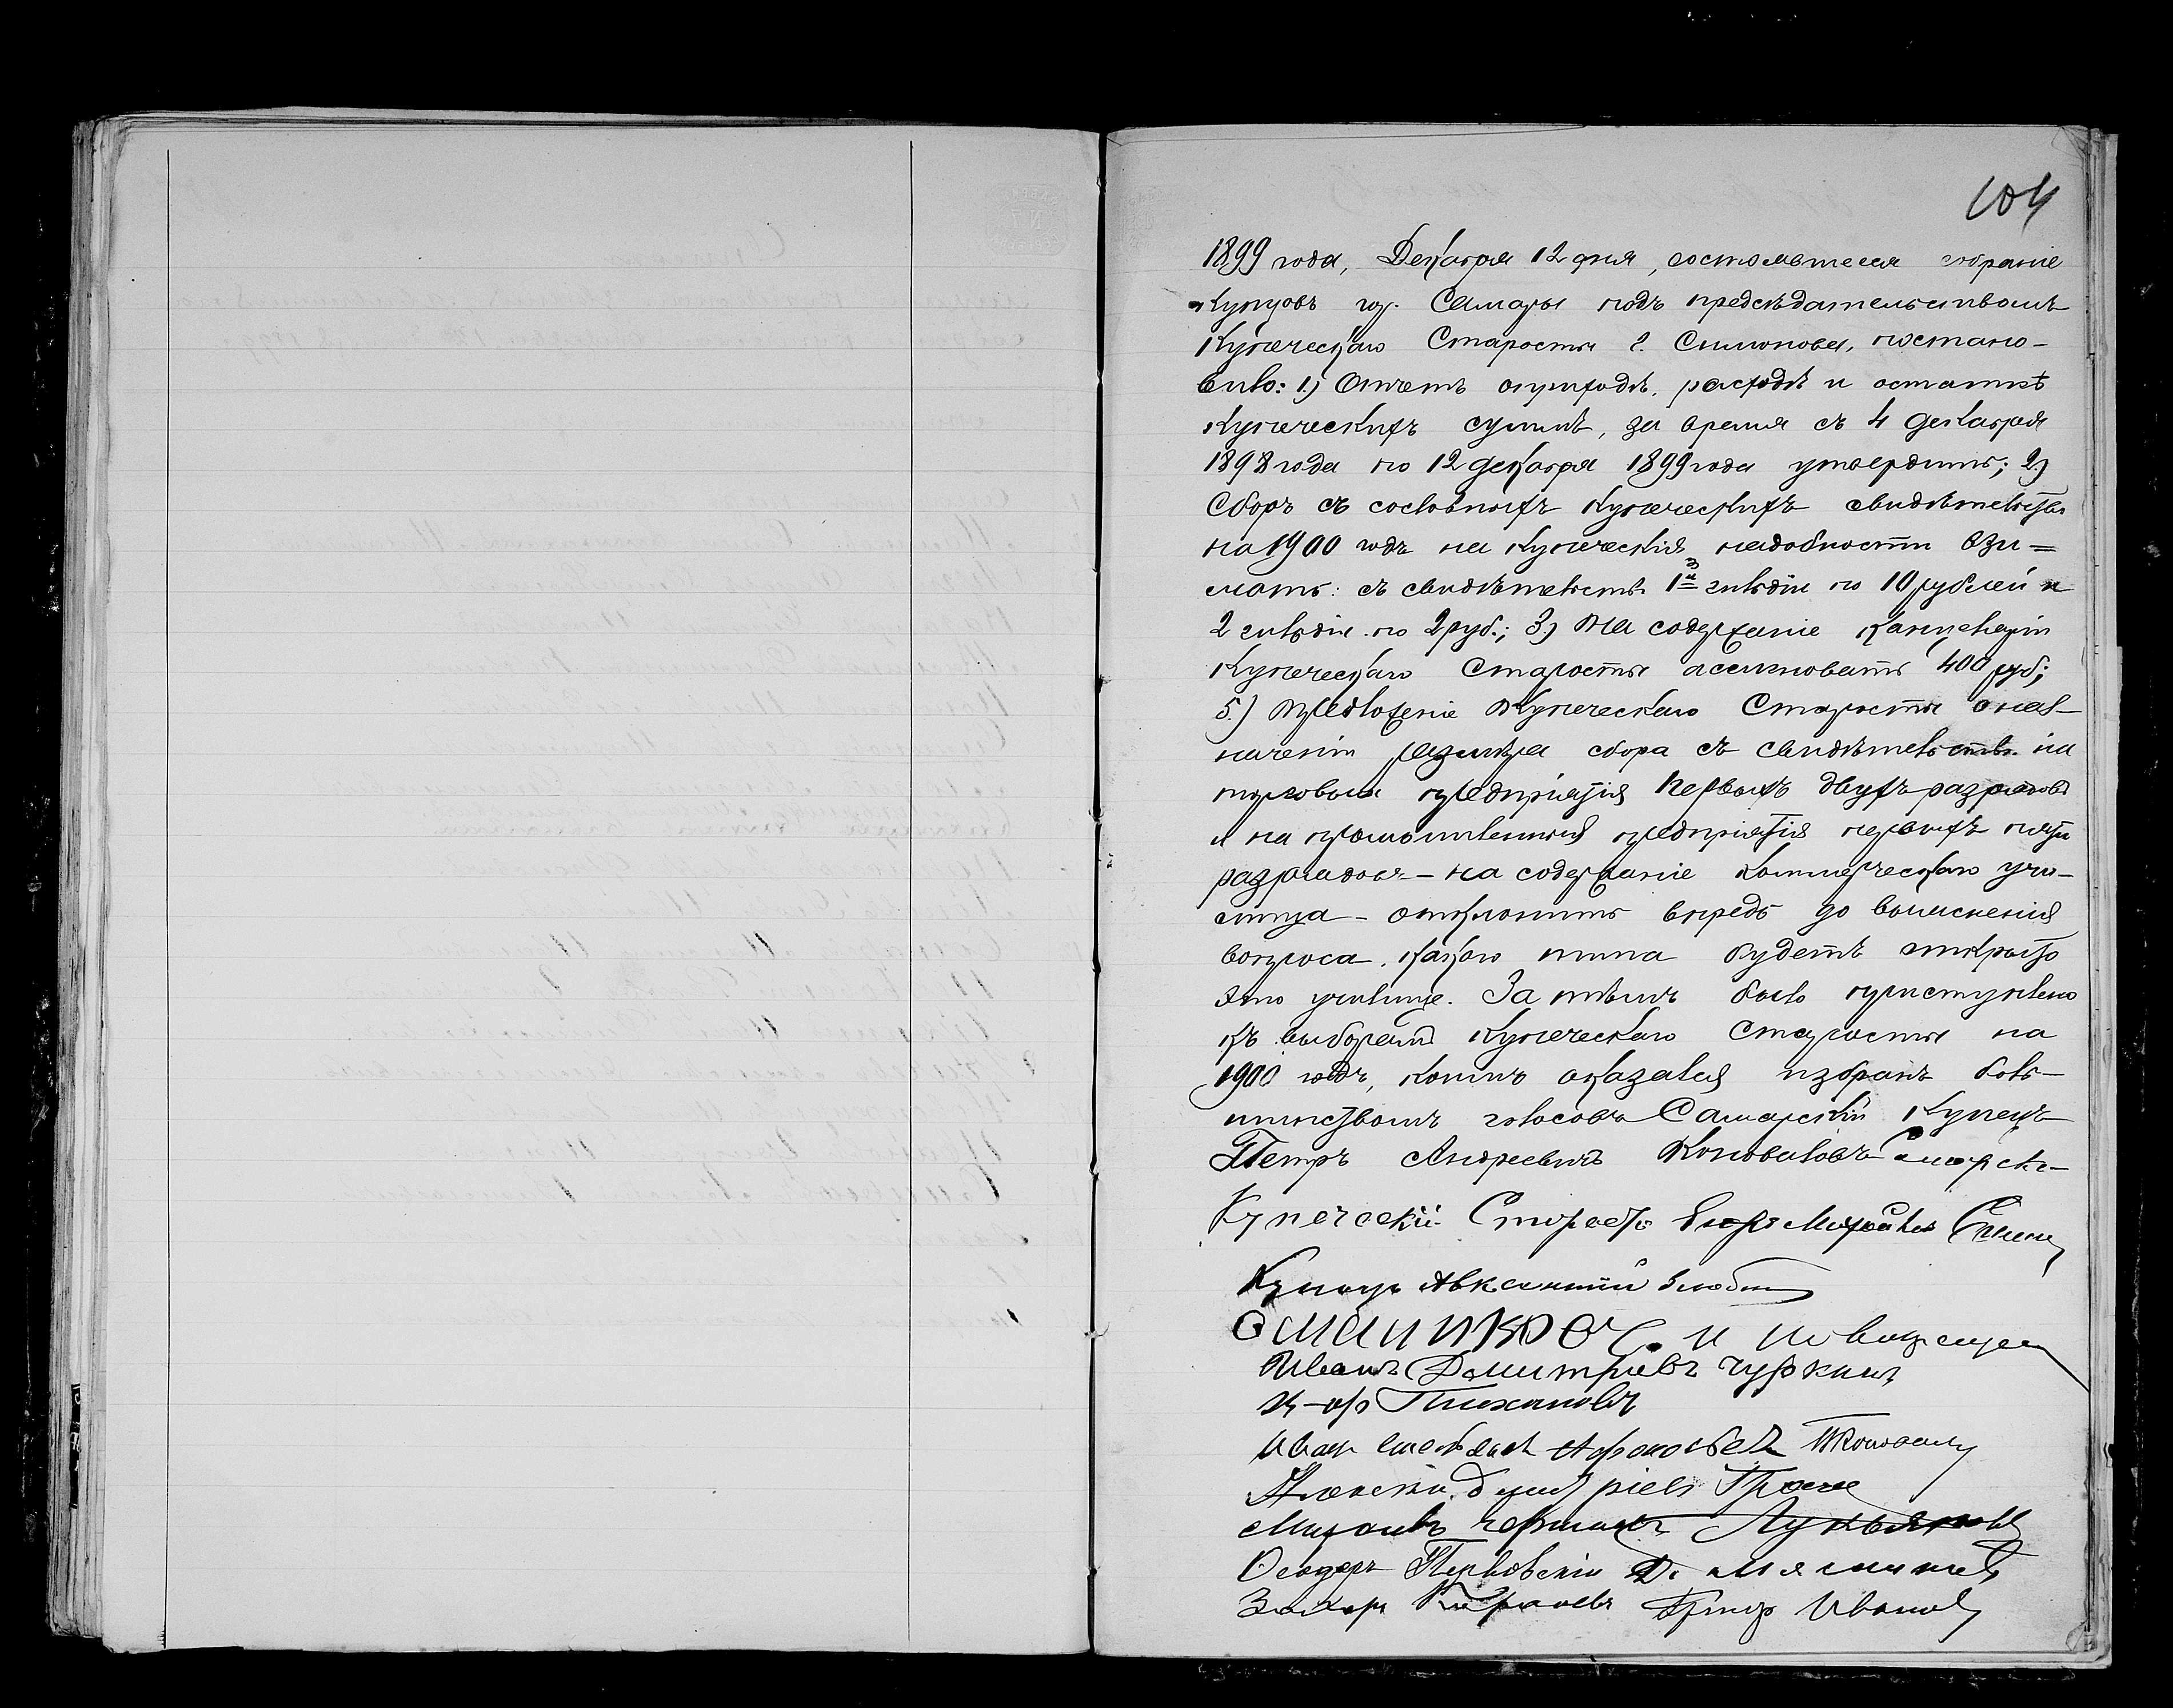 104
1899 года, Декабря 12 дня, состоявшееся собраніе
купцовъ гор. Самары подъ предсѣдательствомъ
Купеческаго Старосты г. Симонова, постано-
вило: 1.) Отчетъ о приходѣ, расходѣ и остаткѣ
купеческихъ суммъ, за время съ 4 декабря
1898 года по 12 декабря 1899 года утвердить; 2.)
Сборъ съ сословныхъ купеческихъ свидѣтельствъ
на 1900 годъ на купеческія надобности взи=
мать: съ свидѣтельствъ 1й гильдіи по 10 рублей и
2 гильдіи по 2 руб.; 3.) На содержаніе канцеляріи
Купеческаго Старосты ассигновать 400 руб;
5.) Предложеніе Купеческаго Старосты о наз-
наченіи размѣра сбора съ свидѣтельствъ на
торговыя предпріятія первыхъ двухъ разрядовъ
и на промышленныя предпріятія первыхъ пяти
разрядовъ – на содержаніе Коммерческаго учи-
лища – отклонить впредь до выясненія
вопроса, какого типа будетъ открыто
это училище. За тѣмъ было приступлено
къ выборамъ Купеческаго Старосты на
1900 годъ, коимъ оказался избранъ боль-
шинствомъ голосовъ Самарскій Купецъ
Петръ Андреевичъ Коновалов
Купеческій Староста
Купецъ Авксентий
Иванъ Дмитриевъ Чуркинъ
Тихановъ
Иван
Михаилъ Лукьянов
Феодоръ
Захар Григор Иванов